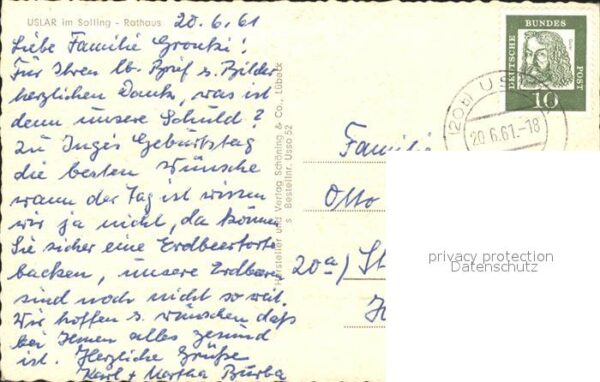 USLAR im Solling - Rathaus
20.6.61
Liebe Familie Gronki!
Für Ihren lb. Brief u. Bilder
herzlichen Dank, was ist
denn unsere Schuld?
Zu Inge's Geburtstag
die besten Wünsche
wann der Tag ist wissen
wir ja nicht, da können
Sie sicher eine Erdbeertorte
backen, unsere Erdbeeren
sind noch nicht so weit.
Wir hoffen u. wünschen daß
bei Ihnen alles gesund
ist. Herzliche Grüße
Karl + Martha Burba
Hersteller und Verlag Schöning & Co., Lübeck
s Bestellnr. Usso 52
DEUTSCHE
BUNDES
POST
10
(20b) US
20.6.61.-18
Familie
Otto
20a) St
privacy protection
Datenschutz